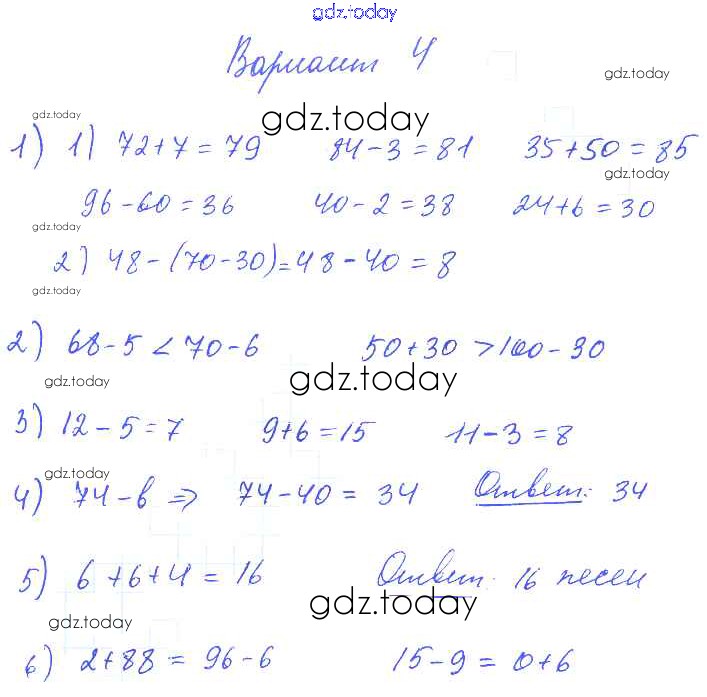 gdz.today
Вариант 4
gdz.today
gdz.today
gdz.today
1) 1) 72+7=79 84-3=81 35+50=85
gdz.today
96-60=36 40-2=38 24+6=30
gdz.today
2) 48-(70-30)=48-40=8
gdz.today
2) 68-5<70-6 50+30>100-30
gdz.today
gdz.today
3) 12-5=7 9+6=15 11-3=8
gdz.today
4) 74-в ⇒ 74-40=34 Ответ: 34
5) 6+6+4=16 Ответ: 16 песен
gdz.today
gdz.today
6) 2+88=96-6 15-9=0+6